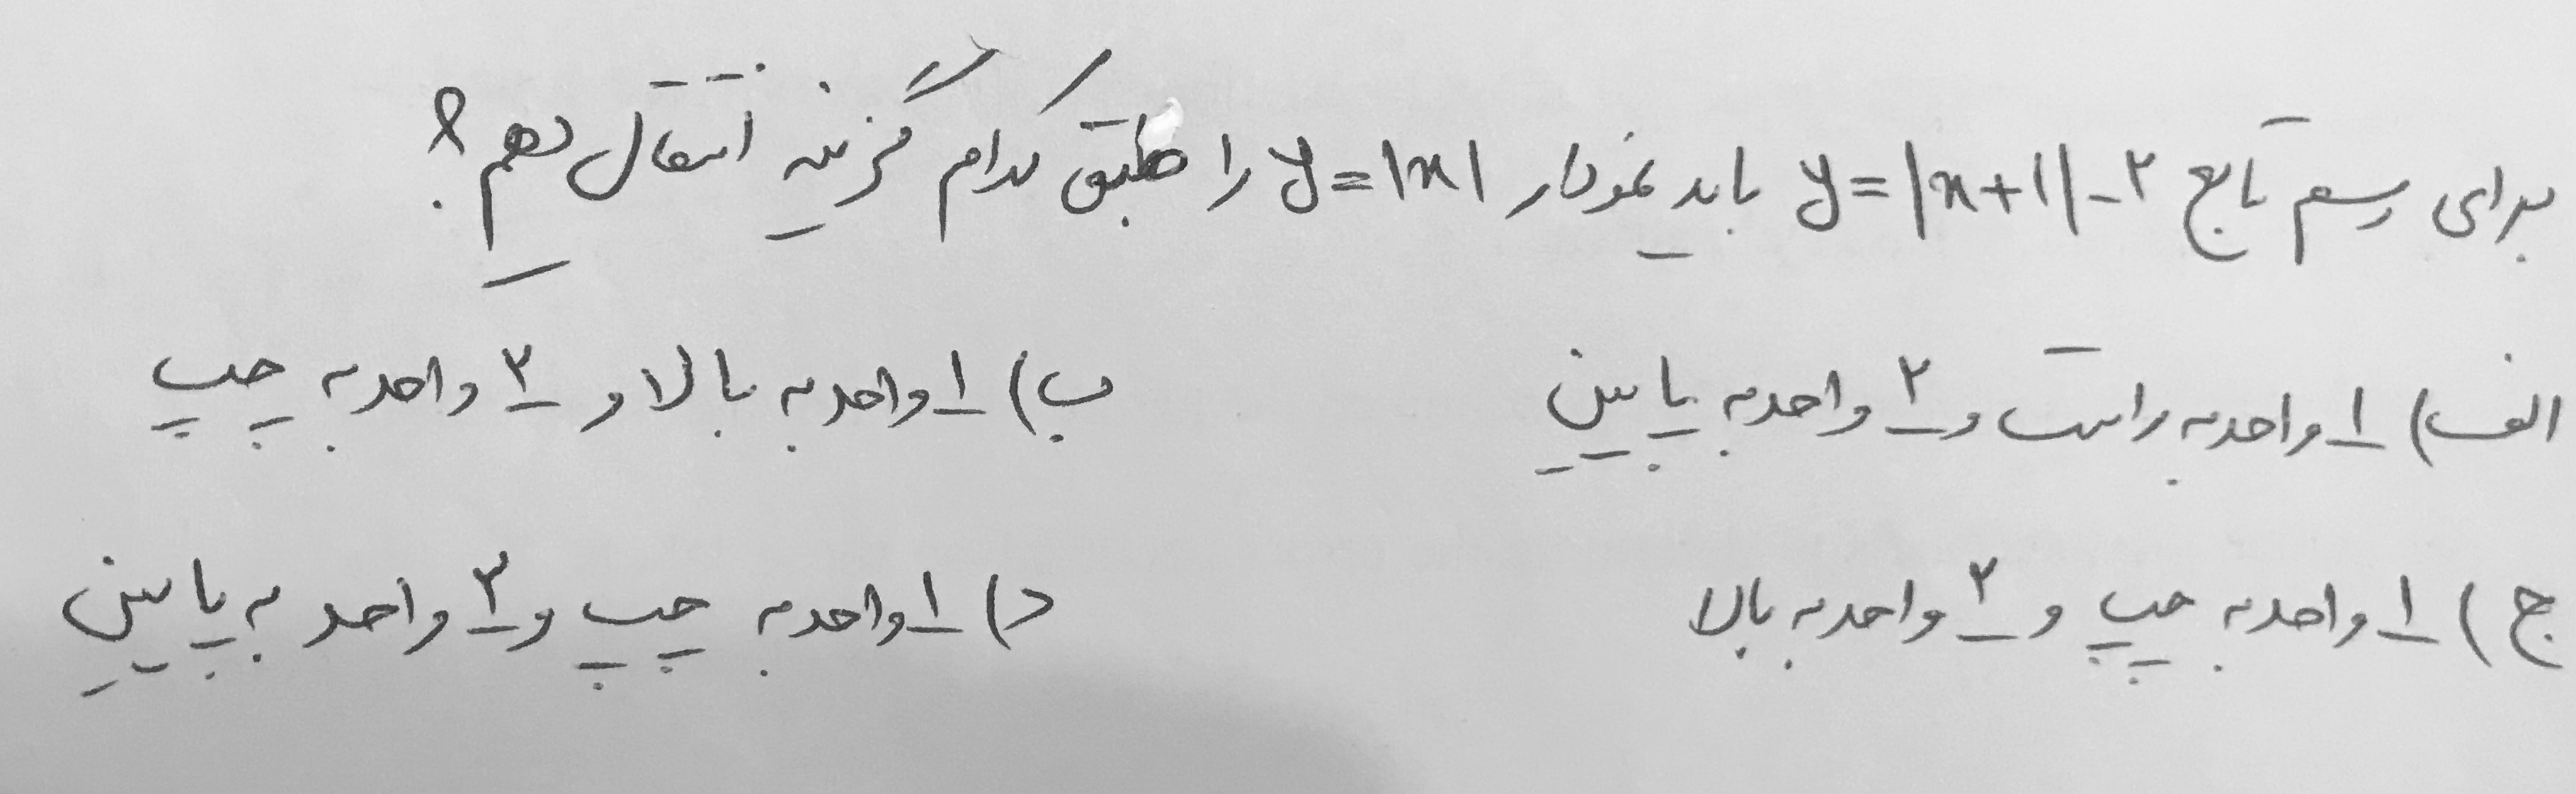 برای رسم تابع y = |x+1| - ۲ باید نمودار y = |x| را طبق کدام گزینه انتقال دهیم؟
الف) ۱ واحد به راست و ۲ واحد به پایین ب) ۱ واحد به بالا و ۲ واحد به چپ
ج) ۱ واحد به چپ و ۲ واحد به بالا د) ۱ واحد به چپ و ۲ واحد به پایین